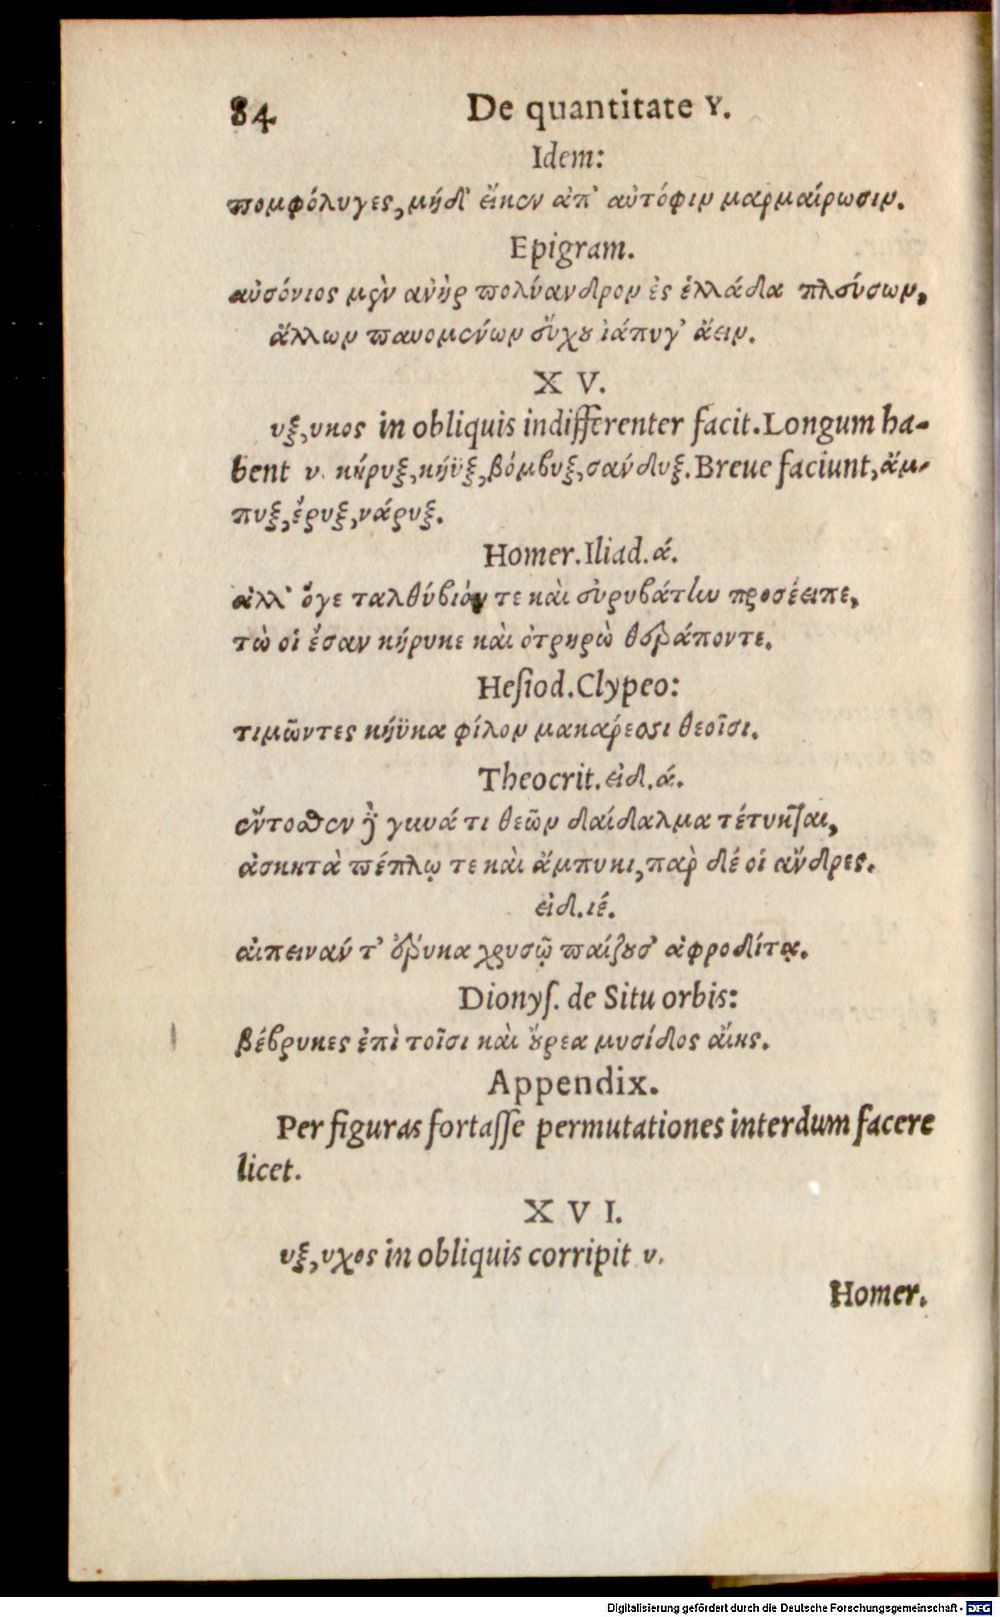 84 De quantitate Υ.
Idem:
πομφόλυγες, μήδ' εἴκεν ἀπ' αὐτόφιν μαρμαίρωσιν.
Epigram.
αὐσόνιος μὲν ἀνὴρ πολύανδρον ἐς ἑλλάδα πλεύσων,
ἄλλων παυομένων εὔχου ἰάπυγ' ἄειν.
XV.
υξ, υκος in obliquis indifferenter facit. Longum ha-
bent υ. κήρυξ, κήϋξ, βόμβυξ, σανδυξ. Breue faciunt, ἄμ-
πυξ, ἔρυξ, νάρυξ.
Homer. Iliad. ά.
ἀλλ' ὅγε ταλθύβιόν τε καὶ εὐρυβάτην προσέειπε,
τὼ οἱ ἔσαν κήρυκε καὶ ὀτρηρὼ θεράποντε.
Hesiod. Clypeo:
τιμῶντες κήϋκα φίλον μακάρεσσι θεοῖσι.
Theocrit. εἰδ. ά.
ἔντοσθεν δὲ γυνά τι θεῶν δαίδαλμα τέτυκται,
ἀσκητὰ πέπλῳ τε καὶ ἄμπυκι, παρ δέ οἱ ἄνδρες.
εἰδ. ιέ.
αἰπεινάν τ' ἔρυκα χρυσῷ παίζουσ' ἀφροδίτα.
Dionys. de Situ orbis:
βέβρυκες ἐπὶ τοῖσι καὶ οὔρεα μυσίδος αἴης.
Appendix.
Per figuras fortasse permutationes interdum facere
licet.
XVI.
υξ, υχος in obliquis corripit υ.
Homer.
Digitalisierung gefördert durch die Deutsche Forschungsgemeinschaft - DFG